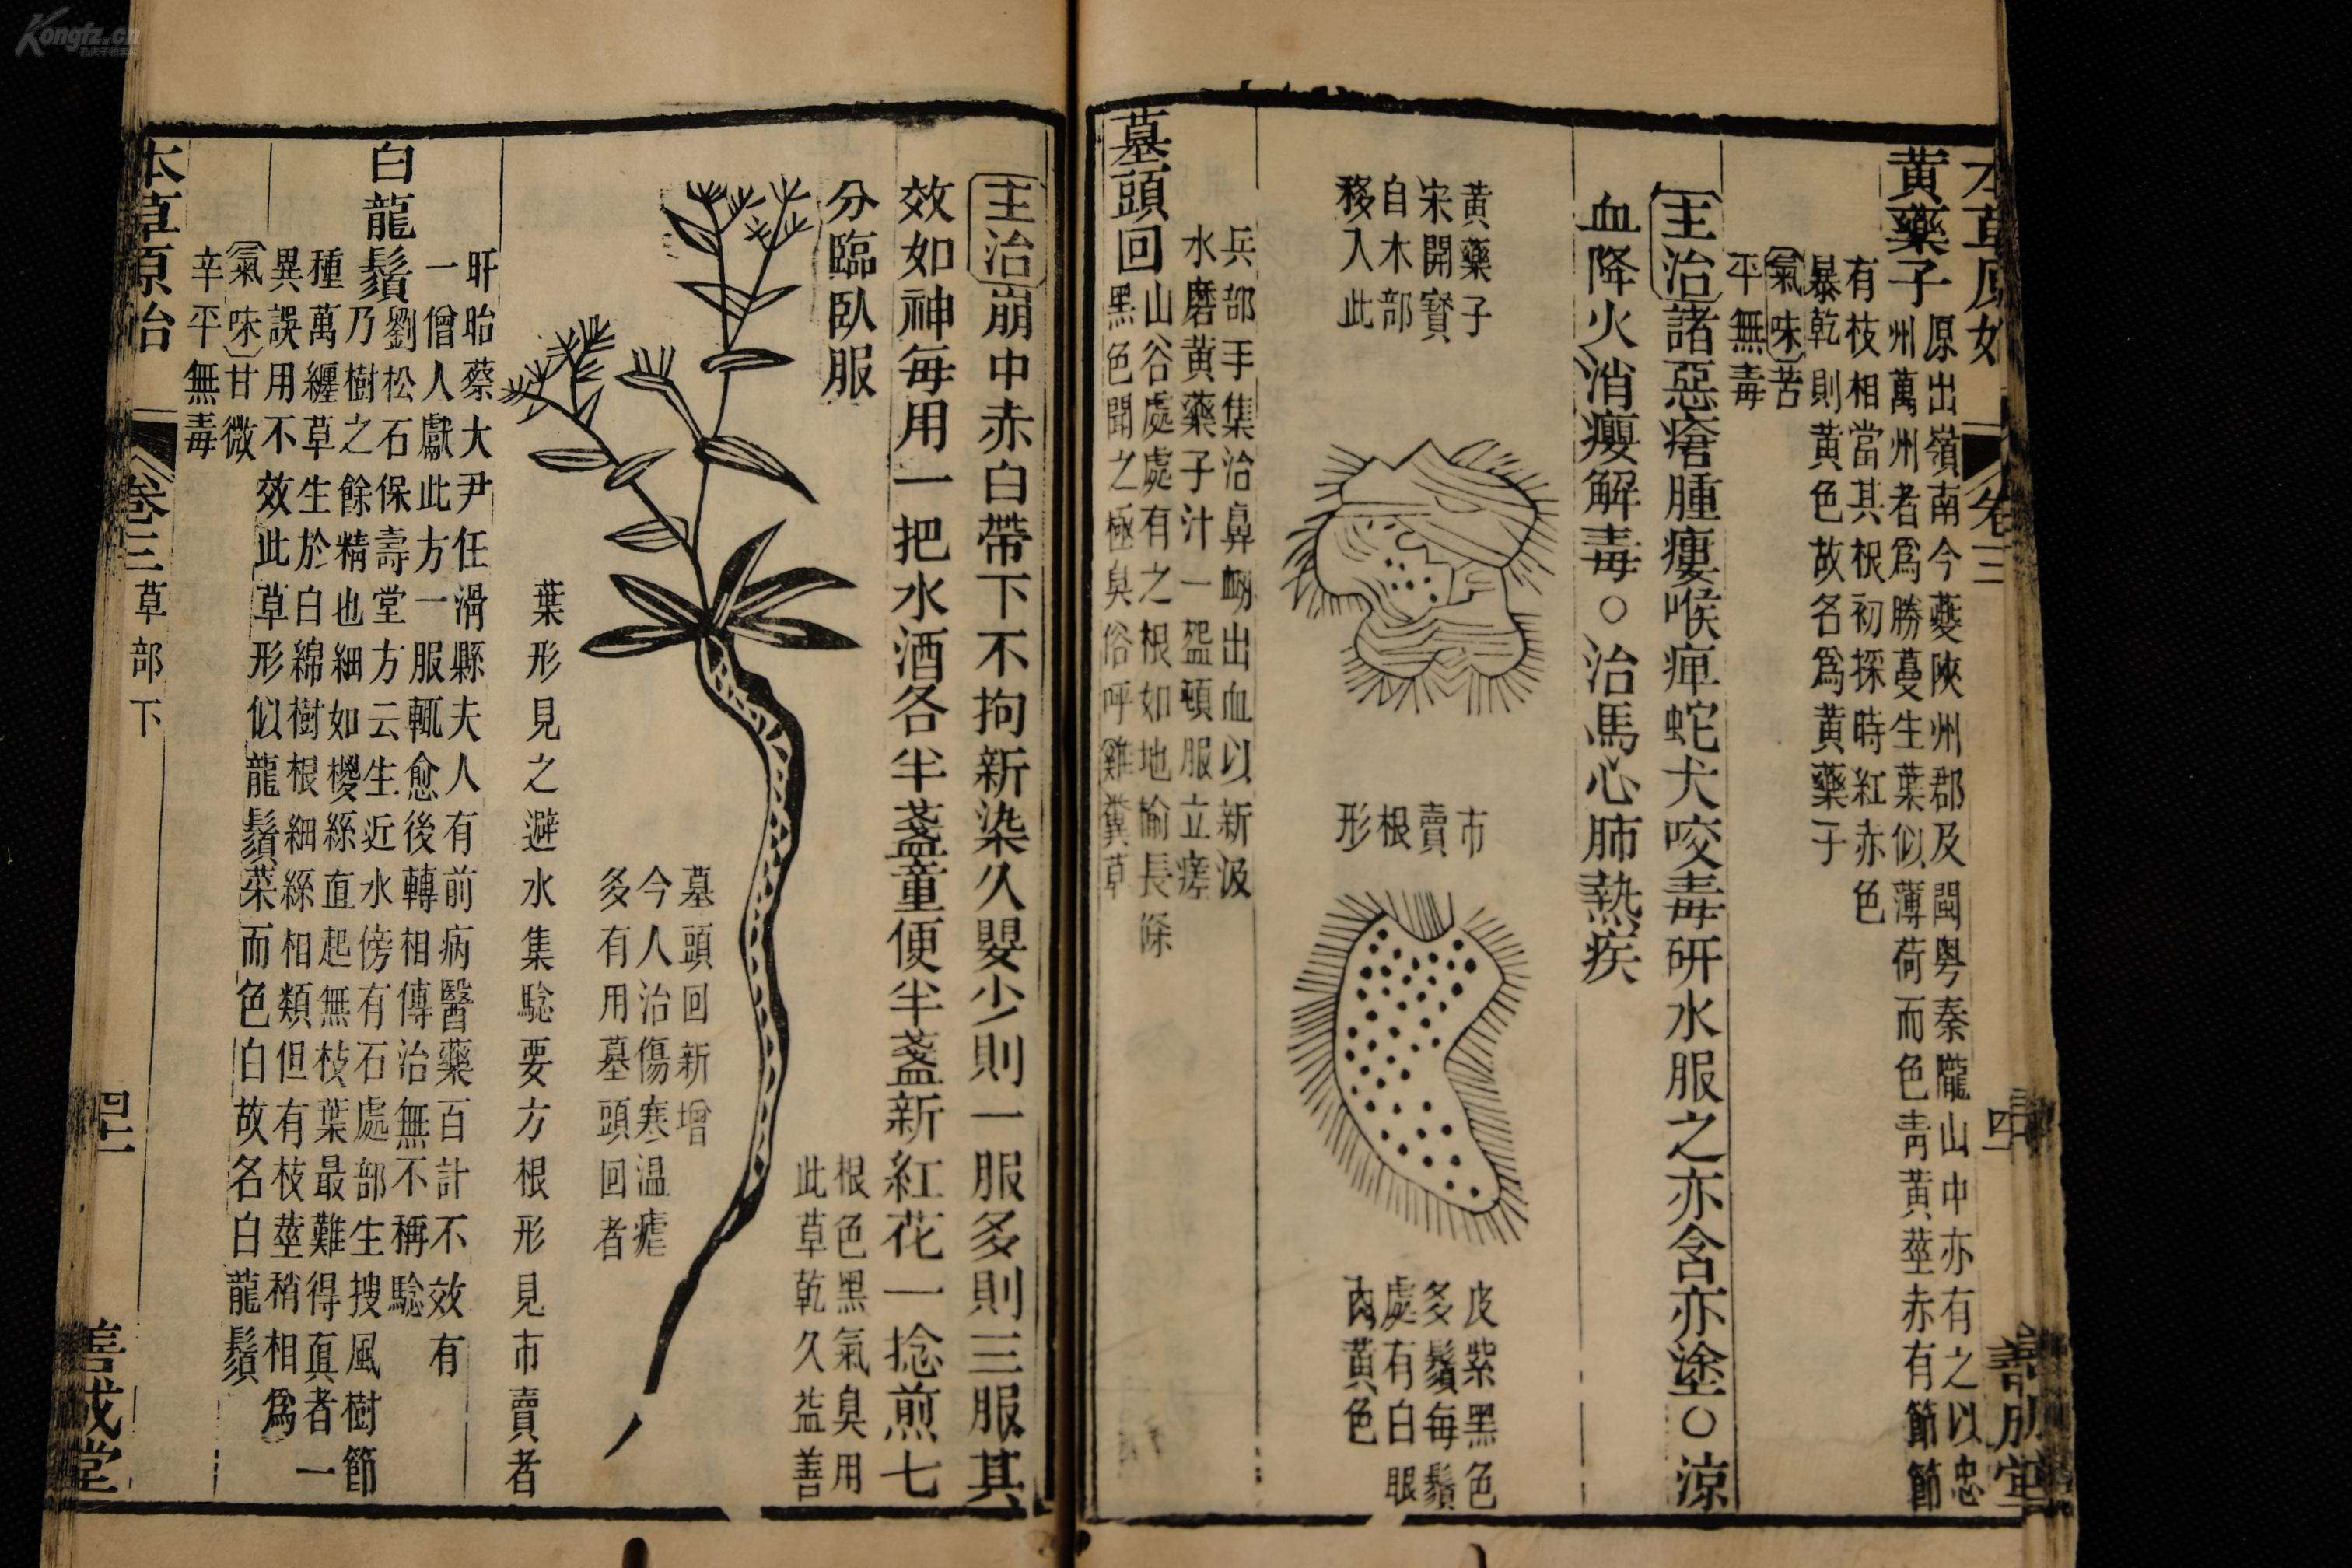 Kongfz.cn
黃藥子
原出嶺南今夔陝州郡及閩粵秦隴山中亦有之以忠
州萬州者爲勝蔓生葉似薄荷而色靑黃莖赤有節節
有枝相當其根初採時紅赤色
暴乾則黃色故名爲黃藥子
氣味苦
平無毒
主治諸惡瘡腫瘻喉痺蛇犬咬毒研水服之亦含亦塗○涼
血降火消癭解毒○治馬心肺熱疾
黃藥子
宋開寶
自木部
移入此
市
賣
根
形
皮紫黑色
多鬚每鬚
處有白眼
肉黃色
兵部手集治鼻衂出血以新汲
水磨黃藥子汁一盌頓服立瘥
墓頭回
山谷處處有之根如地榆長條
黑色聞之極臭俗呼雞糞草
主治崩中赤白帶下不拘新染久嬰少則一服多則三服其
效如神每用一把水酒各半盞童便半盞新紅花一捻煎七
分臨臥服
根色黑氣臭用
此草乾久益善
墓頭回新增
今人治傷寒温瘧
多有用墓頭回者
葉形見之避水集騐要方根形見市賣者
旰眙蔡大尹任滑縣夫人有前病醫藥百計不效有
一僧人獻此方一服輒愈後轉相傳治無不稱騐
白龍鬚
劉松石保壽堂方云生近水傍有石處部生搜風樹節
乃樹之餘精也細如椶絲直起無枝葉最難得眞者一
種萬纏草生於白綿樹根細絲相類但有枝莖稍相爲
異誤用不效此草形似龍鬚菜而色白故名白龍鬚
氣味甘微
辛平無毒
本草原始
卷三
草部下
善成堂